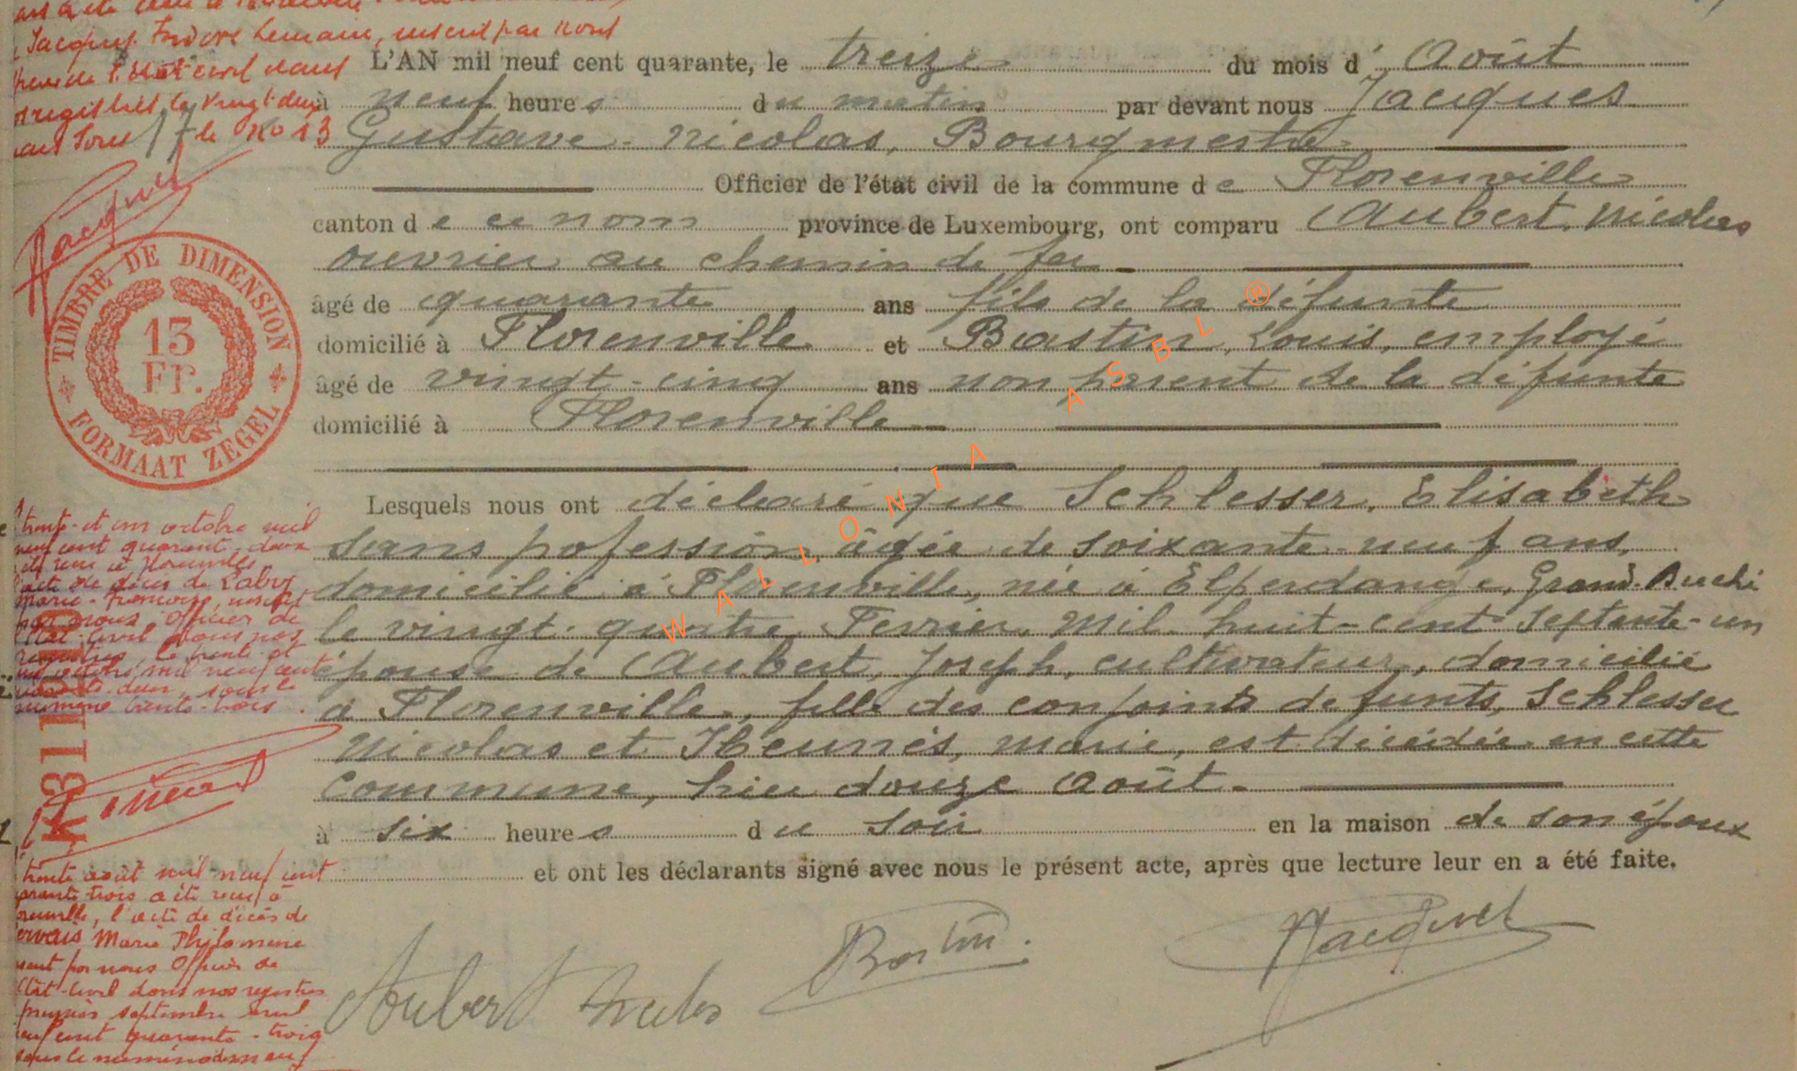 Jacques Isidore Lemaire, inscrit par nous
L'AN mil neuf cent quarante, le treize du mois d' Août
à neuf heures du matin par devant nous Jacques
Gustave Nicolas, Bourgmestre
Officier de l'état civil de la commune de Florenville
canton de ce nom province de Luxembourg, ont comparu Aubert, Nicolas
ouvrier au chemin de fer
âgé de quarante ans fils de la défunte
domicilié à Florenville et Bastin, Louis, employé
âgé de vingt-cinq ans non parent de la défunte
domicilié à Florenville
Lesquels nous ont déclaré que Schlesser, Elisabeth
sans profession, âgée de soixante-neuf ans,
domicilié à Florenville, née à Elperdange, Grand-Duché
le vingt-quatre Fevrier, mil huit-cent septante-un
épouse de Aubert, Joseph, cultivateur, domicilié
à Florenville, fille des conjoints defunts, Schlesser
Nicolas et marie, est décédée en cette
commune, hier douze Août.
à six heures du soir en la maison de son époux
et ont les déclarants signé avec nous le présent acte, après que lecture leur en a été faite.
Aubert Nicolas
Bastin
TIMBRE DE DIMENSION
13
FR.
FORMAAT ZEGEL
trente et un octobre mil
neuf cent quarante deux
l'acte de décès de
Marie
par nous Officier de
l'Etat-Civil dans nos
registres, le trente et
un octobre mil neuf cent
quarante-deux, sous le
numéro trente-trois.
trente août mil neuf cent
quarante trois a été reçu à
Florenville, l'acte de décès de
Gervais Marie Philomène
par nous Officier de
l'Etat-Civil dans nos registres
premier septembre mil
neuf cent quarante-trois
sous le numéro
WALLONIA ASBL ®